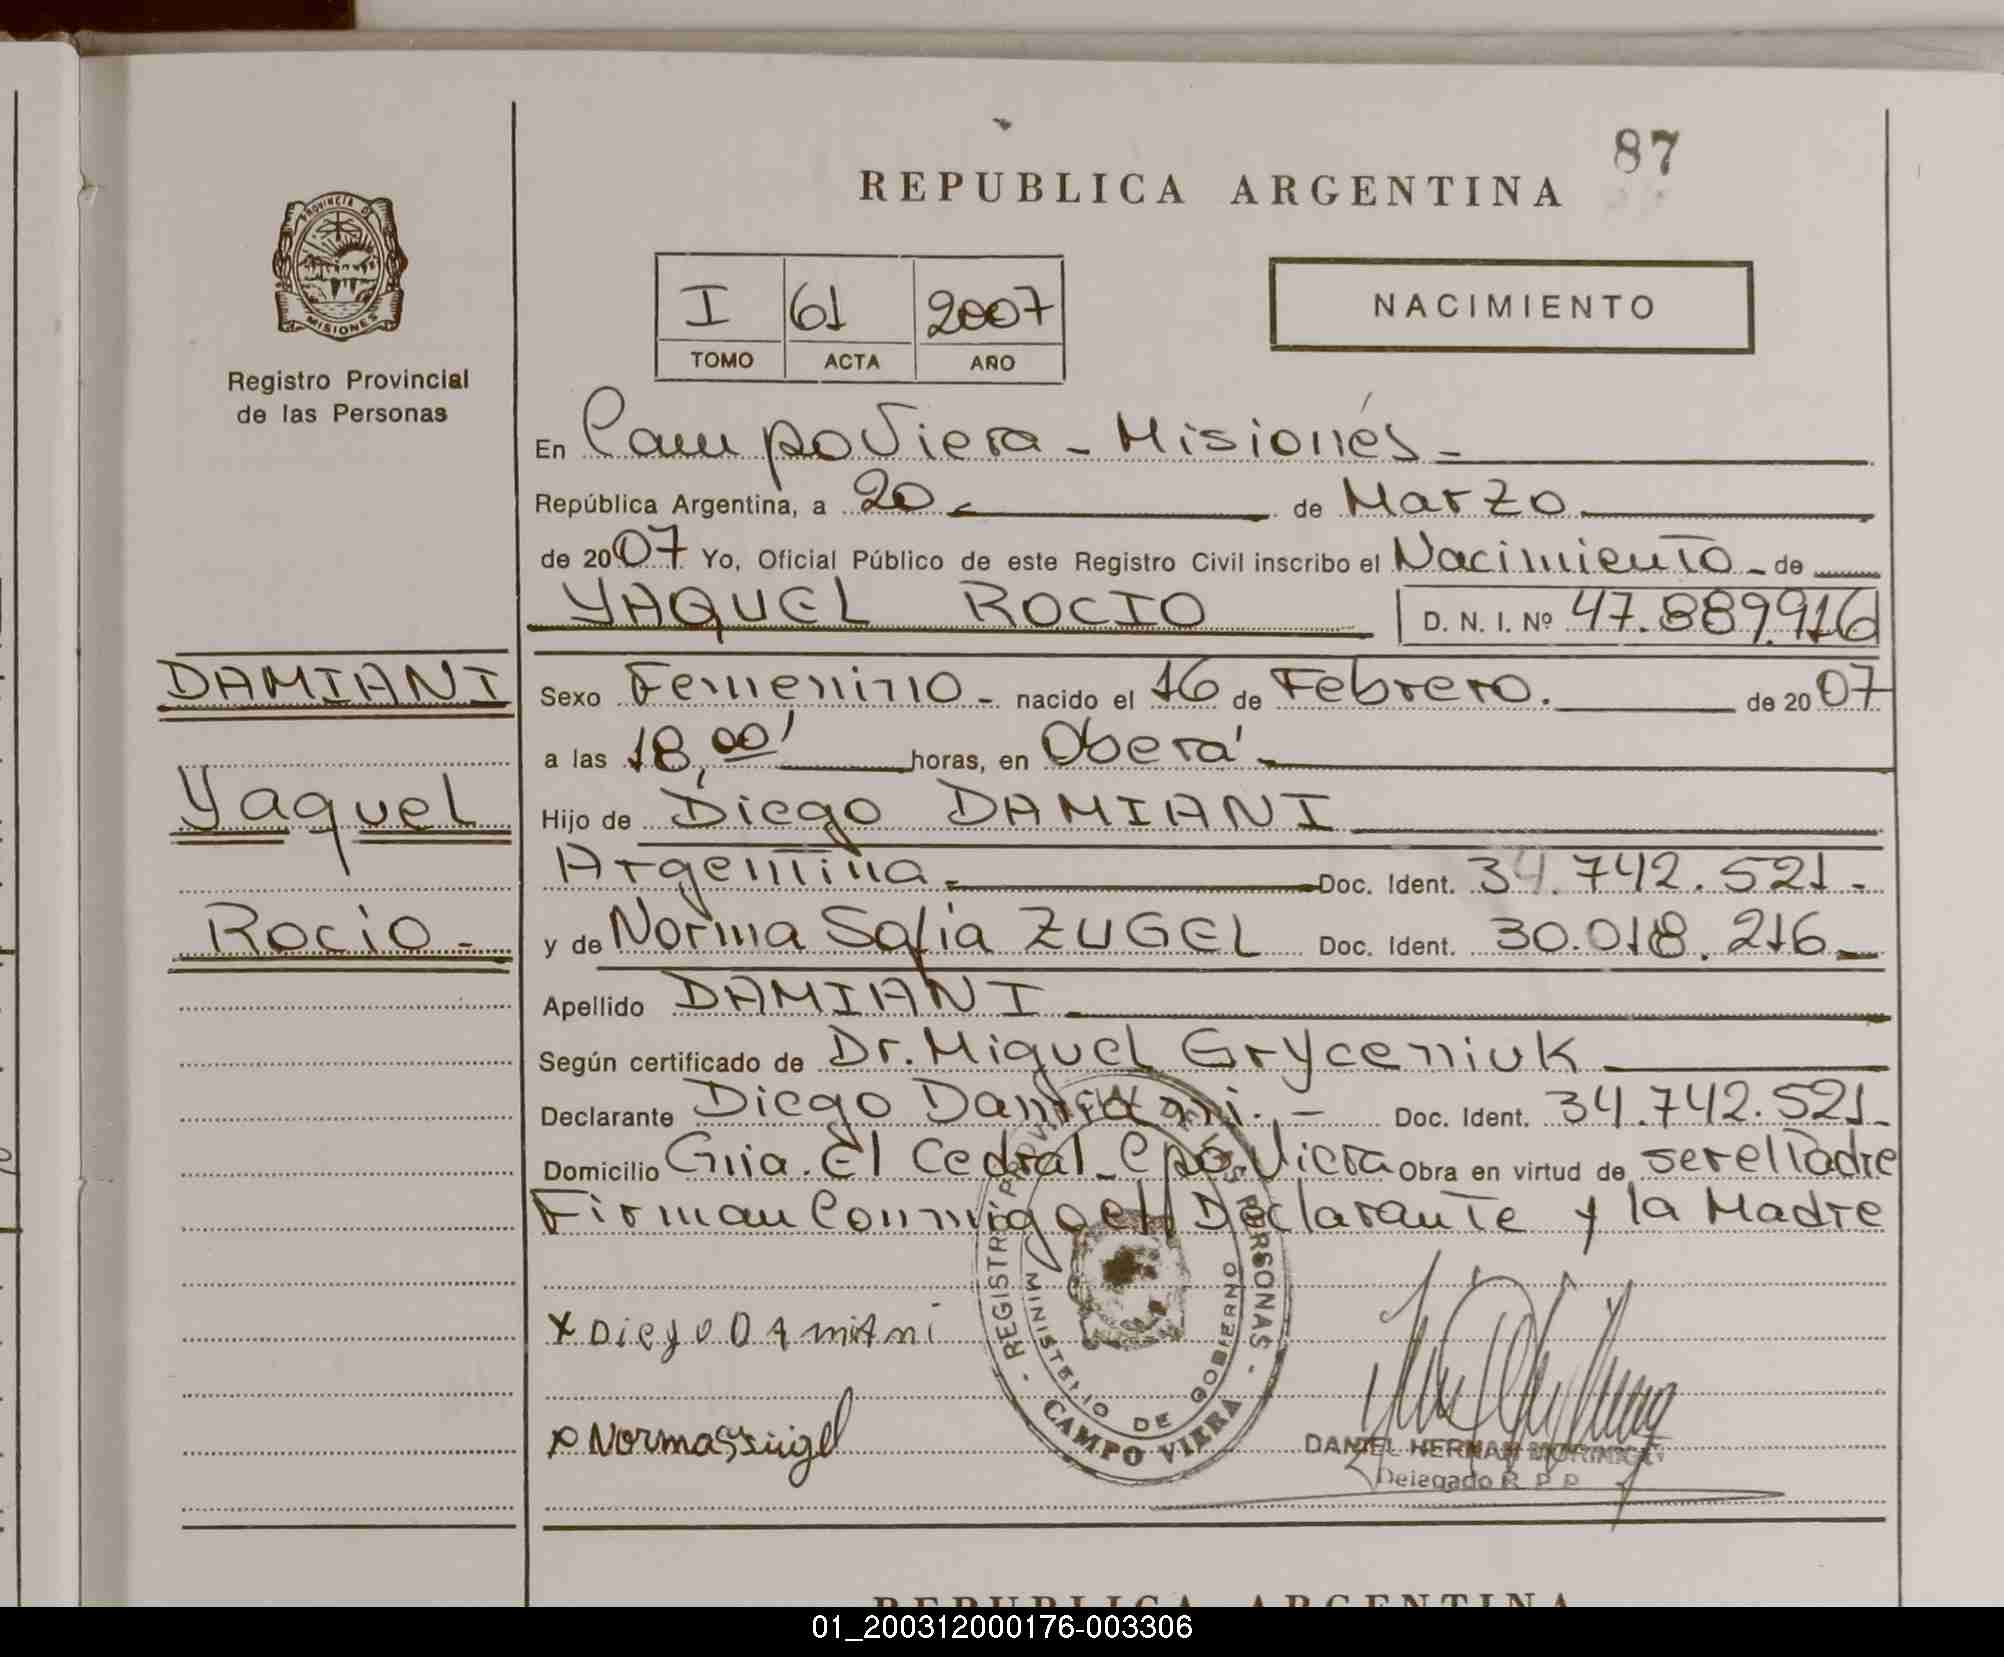 87
REPUBLICA ARGENTINA
PROVINCIA DE
MISIONES
Registro Provincial
de las Personas
I 61 2007
TOMO ACTA AÑO
NACIMIENTO
En Campo Viera - Misiones -
República Argentina, a 20 - de Marzo
de 2007 Yo, Oficial Público de este Registro Civil inscribo el Nacimiento - de
YAQUEL ROCIO D. N. I. Nº 47.889.916
DAMIANI
Yaquel
Rocio -
Sexo Femenino - nacido el 16 de Febrero. de 2007
a las 18,00' horas, en Oberá
Hijo de Diego DAMIANI
Argentina - Doc. Ident. 34.742.521 -
y de Norma Sofia ZUGEL Doc. Ident. 30.018.216
Apellido DAMIANI
Según certificado de Dr. Miguel Gryceniuk
Declarante Diego Damiani. - Doc. Ident. 34.742.521 -
Domicilio Gnia. El Cedral - Cpo. Viera Obra en virtud de ser el Padre
Firman Conmigo el Declarante y la Madre
x Diego DAmiAni
REGISTRO PROVINCIAL DE LAS PERSONAS
MINISTERIO DE GOBIERNO
CAMPO VIERA
DANIEL HERNAN
Delegado R. P. P.
REPUBLICA ARGENTINA
01_200312000176-003306